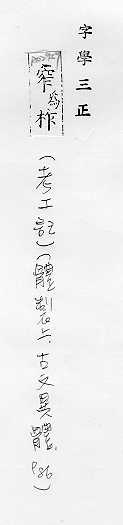 字學三正
窄為柞
(考工記)(體製上.古文異體.P86)